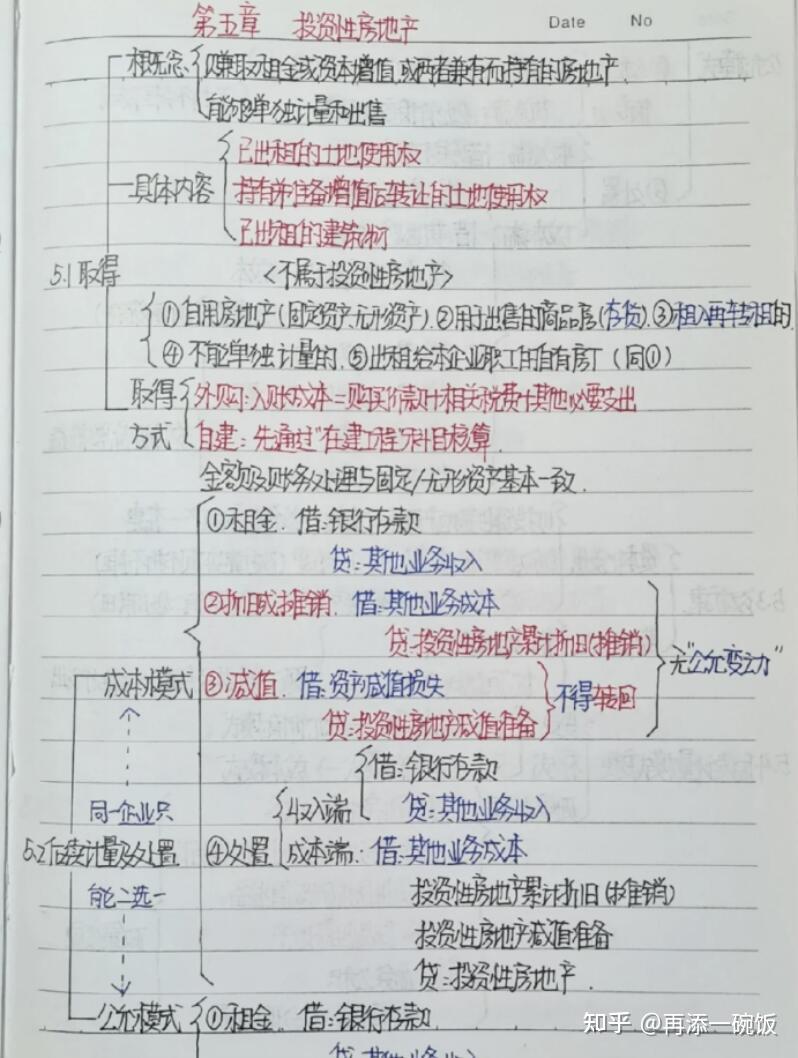 第五章 投资性房地产 Date No
概念 以赚取租金或资本增值,或两者兼有而持有的房地产
能够单独计量和出售
已出租的土地使用权
具体内容 持有并准备增值后转让的土地使用权
已出租的建筑物
5.1 取得 <不属于投资性房地产>
①自用房地产(固定资产、无形资产).②用于出售的商品房(存货).③租入再转租的.
④不能单独计量的.⑤出租给本企业职工的自有房丁(同①)
取得 外购:入账成本=购买价款+相关税费+其他必要支出
方式 自建:先通过"在建工程"科目核算.
金额及账务处理与固定/无形资产基本一致.
①租金.借:银行存款
贷:其他业务收入
②折旧或摊销.借:其他业务成本
贷:投资性房地产累计折旧(摊销) 无"公允变动"
成本模式 ③减值.借:资产减值损失 不得转回
贷:投资性房地产减值准备
借:银行存款
同一企业只 收入端 贷:其他业务收入
5.2后续计量及处置 ④处置 成本端:借:其他业务成本
能二选一 投资性房地产累计折旧(摊销)
投资性房地产减值准备
贷:投资性房地产.
公允模式 ①租金.借:银行存款.
贷:其他业务收入
知乎 @再添一碗饭